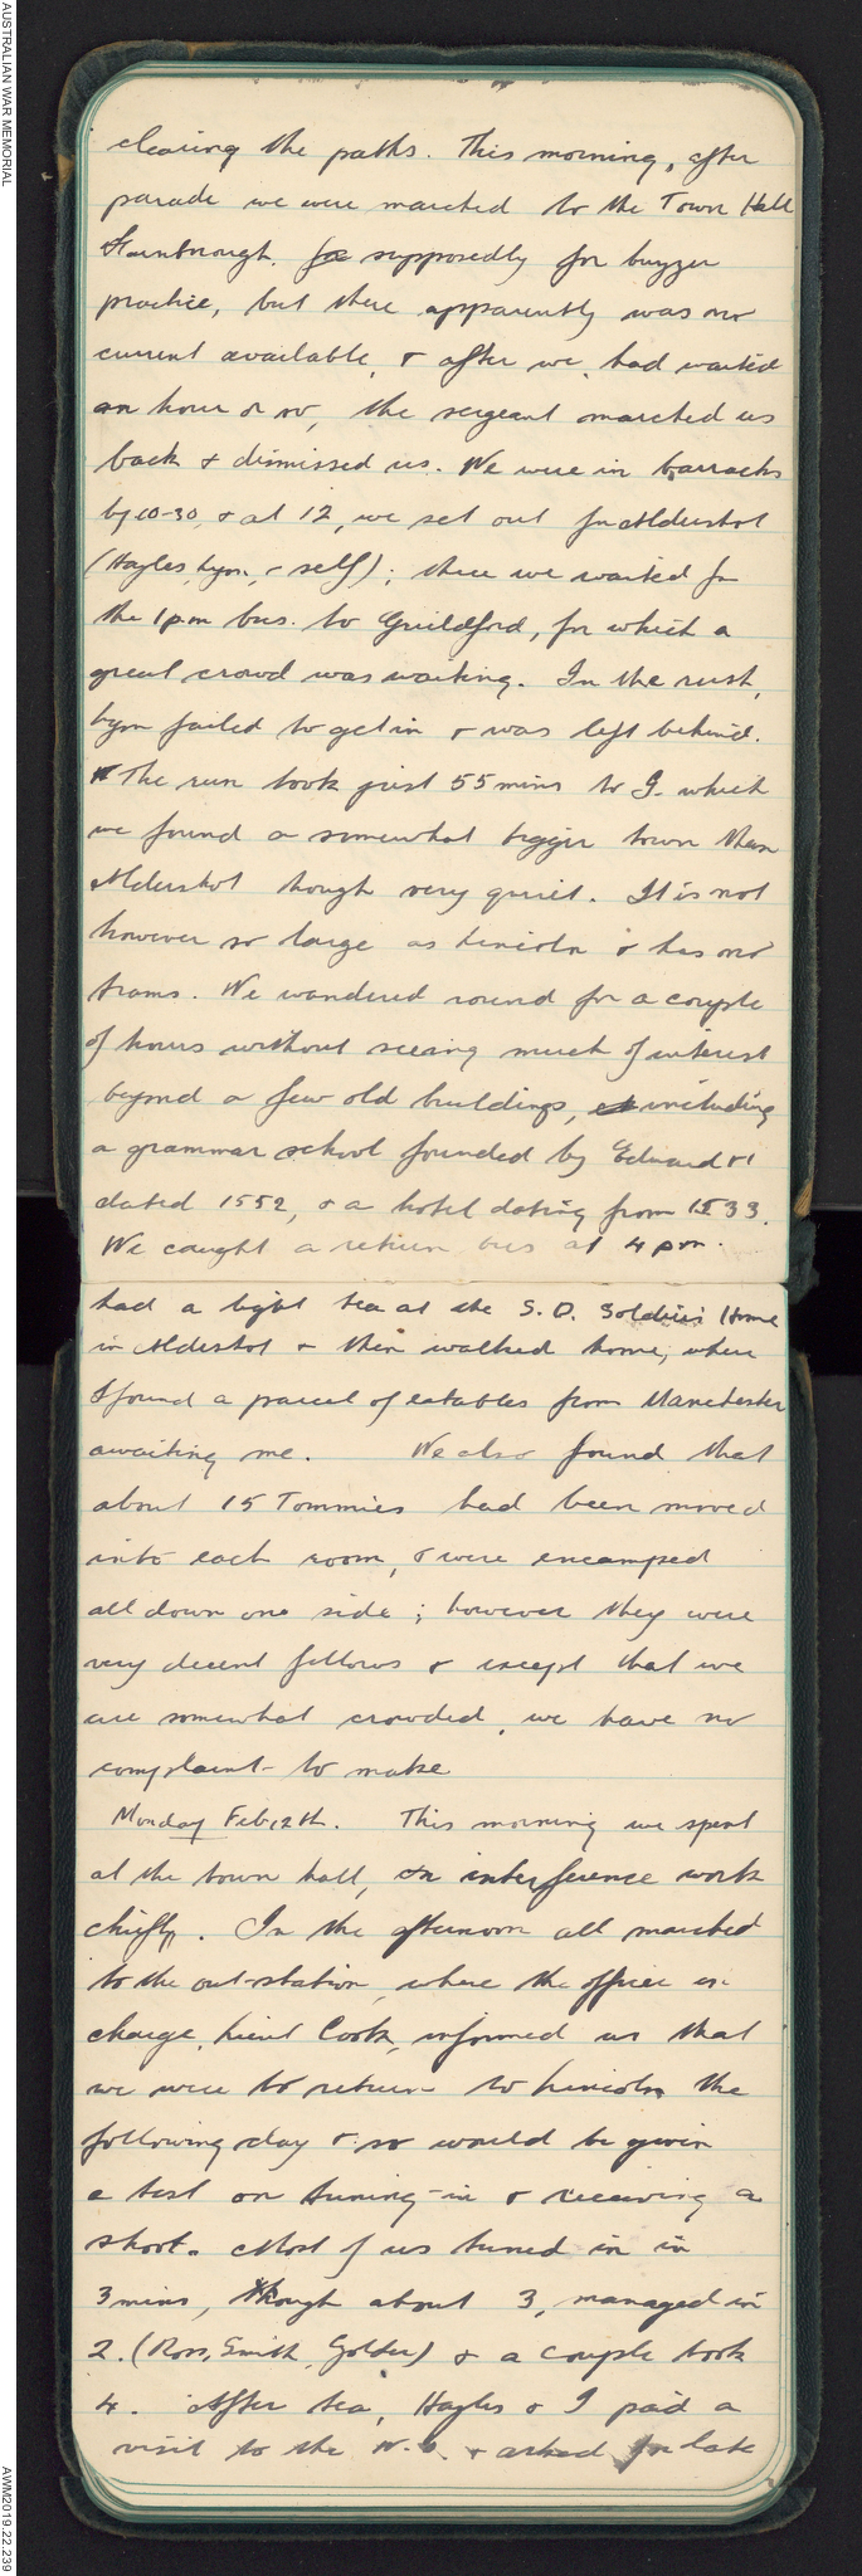 AUSTRALIAN WAR MEMORIAL
clearing the paths. This morning, after
parade we were marched to the Town Hall
Farnborough. for supposedly for buzzer
practice, but there apparently was no
current available, & after we had waited
an hour or so, the sergeant marched us
back & dismissed us. We were in barracks
by 10-30, & at 12, we set out for Aldershot
(Hayles, Lyon, & self); there we waited for
the 1pm bus. to Guildford, for which a
great crowd was waiting. In the rush,
Lyon failed to get in & was left behind.
The run took just 55 mins to G. which
we found a somewhat bigger town than
Aldershot though very quiet. It is not
however so large as Lincoln & has no
trams. We wandered round for a couple
of hours without seeing much of interest
beyond a few old buildings, including
a grammar school founded by Edward VI
dated 1552, & a hotel dating from 1533.
We caught a return bus at 4 pm.
had a light tea at the S. D. Soldiers Home
in Aldershot & then walked home, where
I found a parcel of eatables from Manchester
awaiting me. We also found that
about 15 Tommies had been moved
into each room, & were encamped
all down one side; however they were
very decent fellows & except that we
are somewhat crowded, we have no
complaint to make
Monday Feb 12th. This morning we spent
at the town hall, on interference work
chiefly. In the afternoon all marched
to the out-station, where the officer in
charge, Lieut Cook, informed us that
we were to return to Lincoln the
following day & so would be given
a test on tuning-in & receiving a
shoot. Most of us tuned in in
3 mins, though about 3, managed in
2. (Ross, Smith, Golder) & a couple took
4. After tea, Hayles & I paid a
visit to the & asked for late
AWM2019.22.239